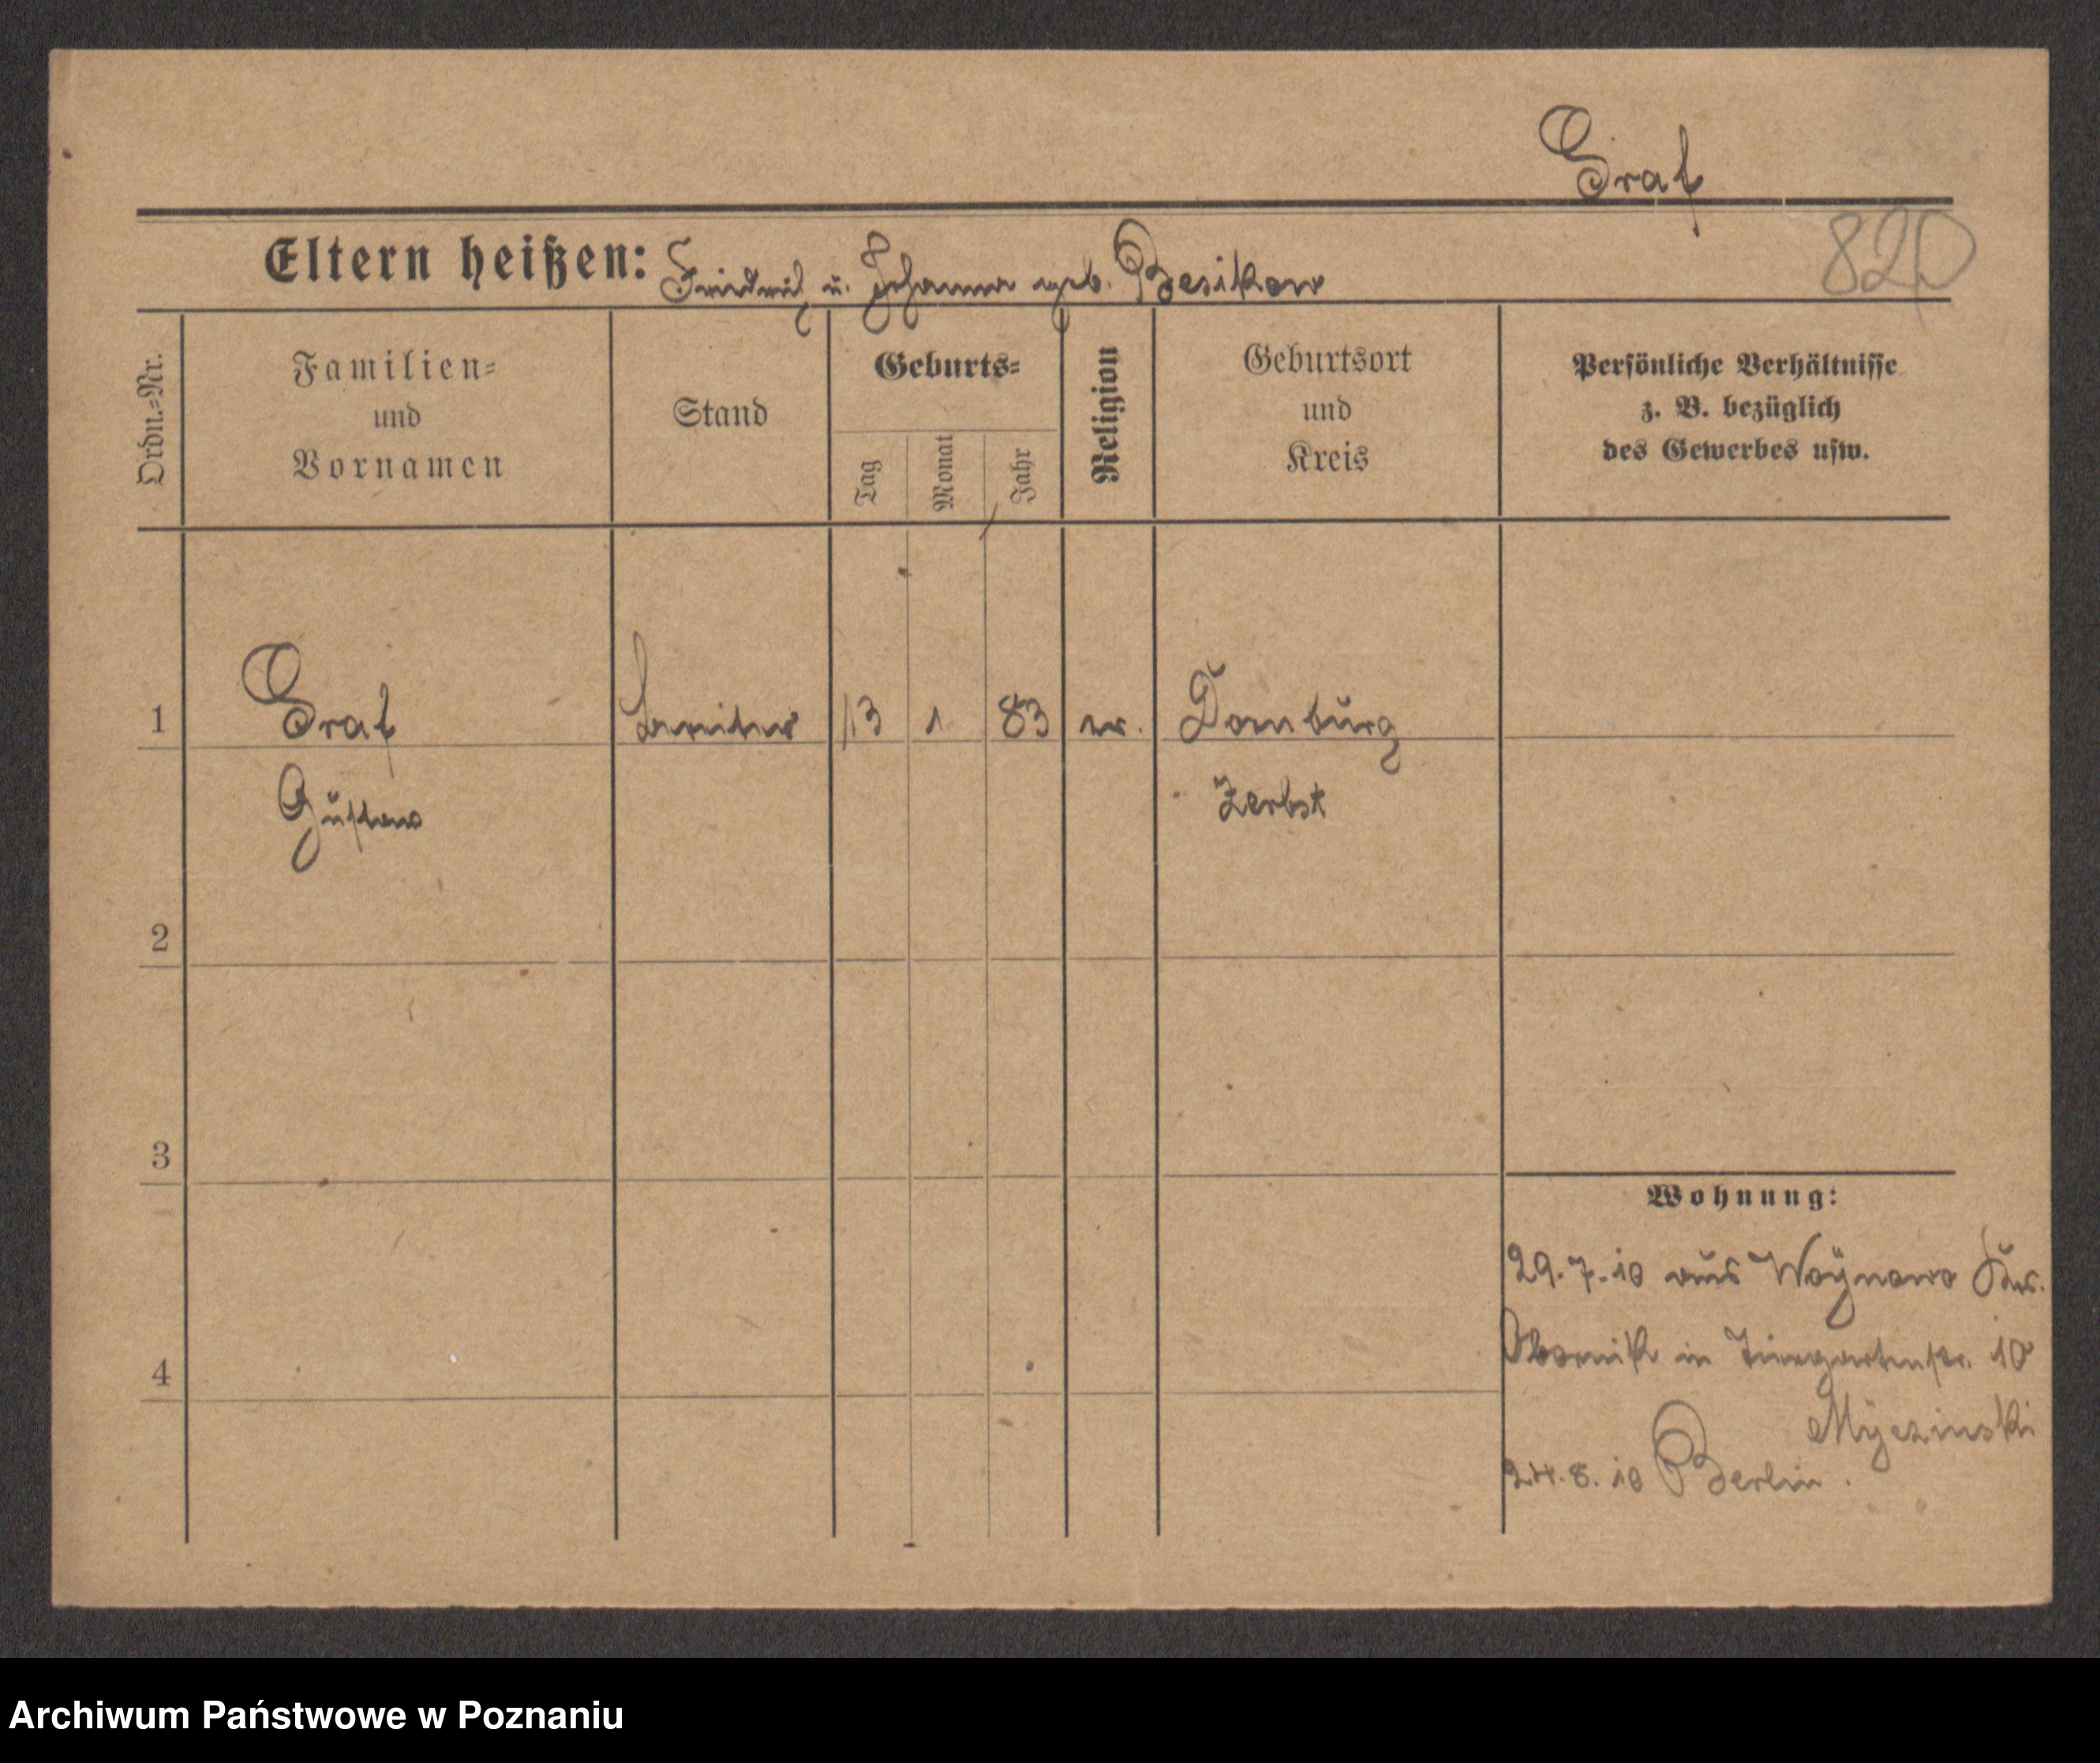 Graf
Eltern heißen: Friedrich u. Johanna geb. Besikow
820
Ordn.=Nr.
Familien=
und
Vornamen
Stand
Geburts=
Tag
Monat
Jahr
Religion
Geburtsort
und
Kreis
Persönliche Verhältnisse
z. B. bezüglich
des Gewerbes usw.
1 Graf 13 1 83 ev. Dornburg
Gustav Zerbst
2
3
4
Wohnung:
29.7.10 aus Woynowo Krs.
Obornik in Tiergartenstr. 10
Myczinski
24.8.10 Berlin.
Archiwum Państwowe w Poznaniu